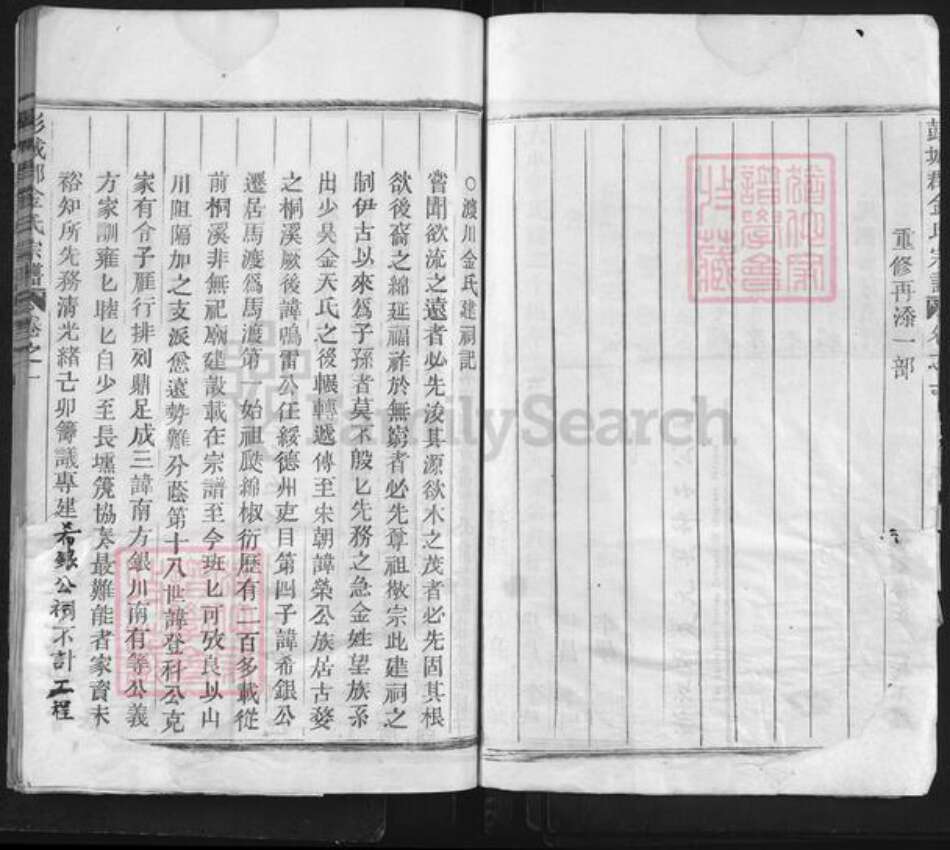 彭城郡金氏宗譜
重修再添一部
○渡川金氏建祠記
嘗聞欲流之遠者必先浚其源欲木之茂者必先固其根
欲後裔之綿延福祚於無窮者必先尊祖敬宗此建祠之
制伊古以來爲子孫者莫不殷匕先務之急金姓望族系
出少昊金天氏之後輾轉遞傳至宋朝諱榮公族居古婺
之桐溪厥後諱鳴雷公任綏德州吏目第四子諱希銀公
遷居馬渡爲馬渡第一始祖瓞綿椒衍歷有二百多載從
前桐溪非無祀廟建設載在宗譜至今班匕可攷良以山
川阻隔加之支派愈遠勢難分蔭第十八世諱登科公克
家有令子雁行排列鼎足成三諱南方銀川南有等公義
方家訓雍匕睦匕自少至長壎箎協奏最難能者家資未
裕知所先務清光緒己卯籌議專建希銀公祠不計工程
彭城郡金氏宗譜 卷之一
FamilySearch